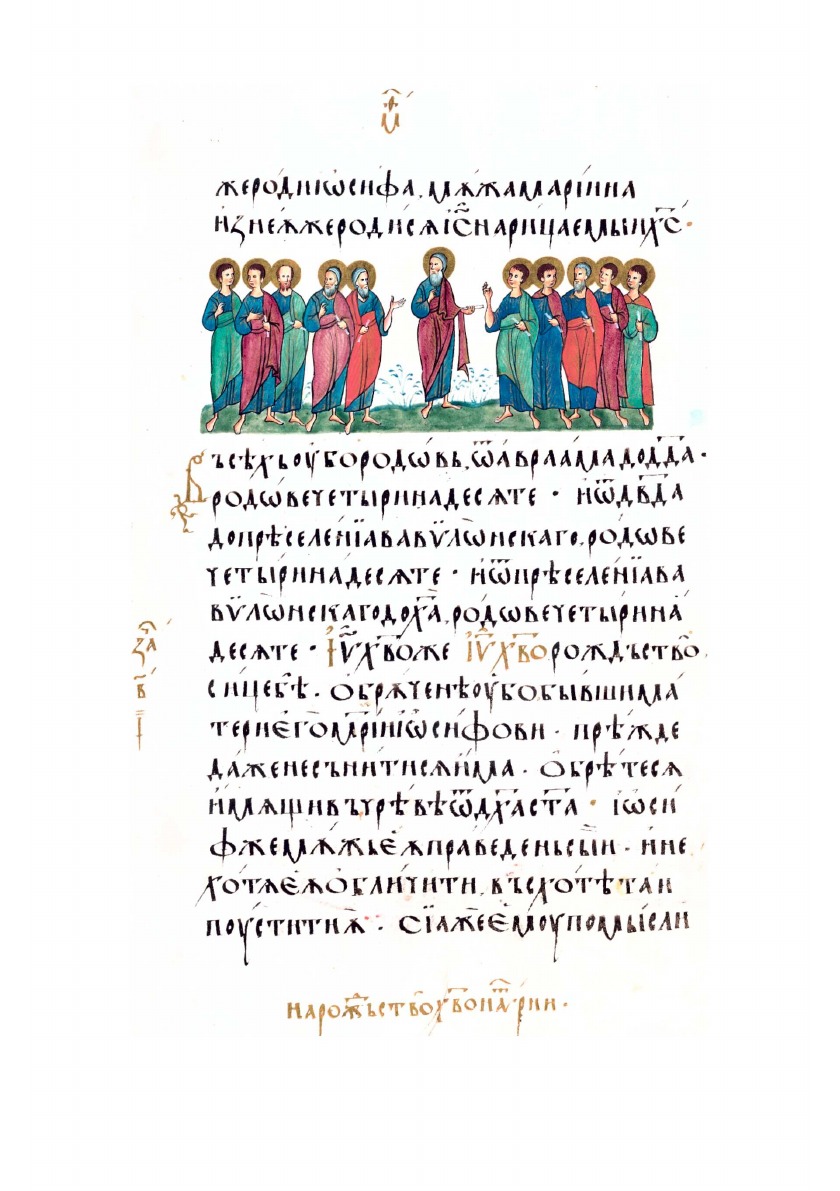 же роди іѡсифа, мѫжа маріина
из неѫже роди сѧ іс҃ нарицаемыи хс҃ ·
Въсѣхь оубо родѡвь, ѿ авраама до дв҃да ·
родѡве четыринадесѧте · и ѿ дв҃да
до прѣселенїа вавѷлѡнскаго, родѡве
четыринадесѧте · и ѿ прѣселенїа ва
вѷлѡнскаго до ха҃, родѡве четырина
десѧте · Іѵ҃ хв҃о же іѵ҃ хв҃о рождъство
сице бѣ · Обрѫченѣ оубо бывши ма
тери его маріи іѡсифови · прѣжде
даже не сънитисѧ има · Обрѣтесѧ
имѫщи въ чрѣвѣ ѿ дх҃а ст҃а · іѡси
ф же мѫжь еѫ праведень сыи · и не
хотѧ еѫ обличити, въсхотѣ таи
поустити ѫ · сїа же емоу помысли
за҃
в҃
на рожⷣьство хв҃о